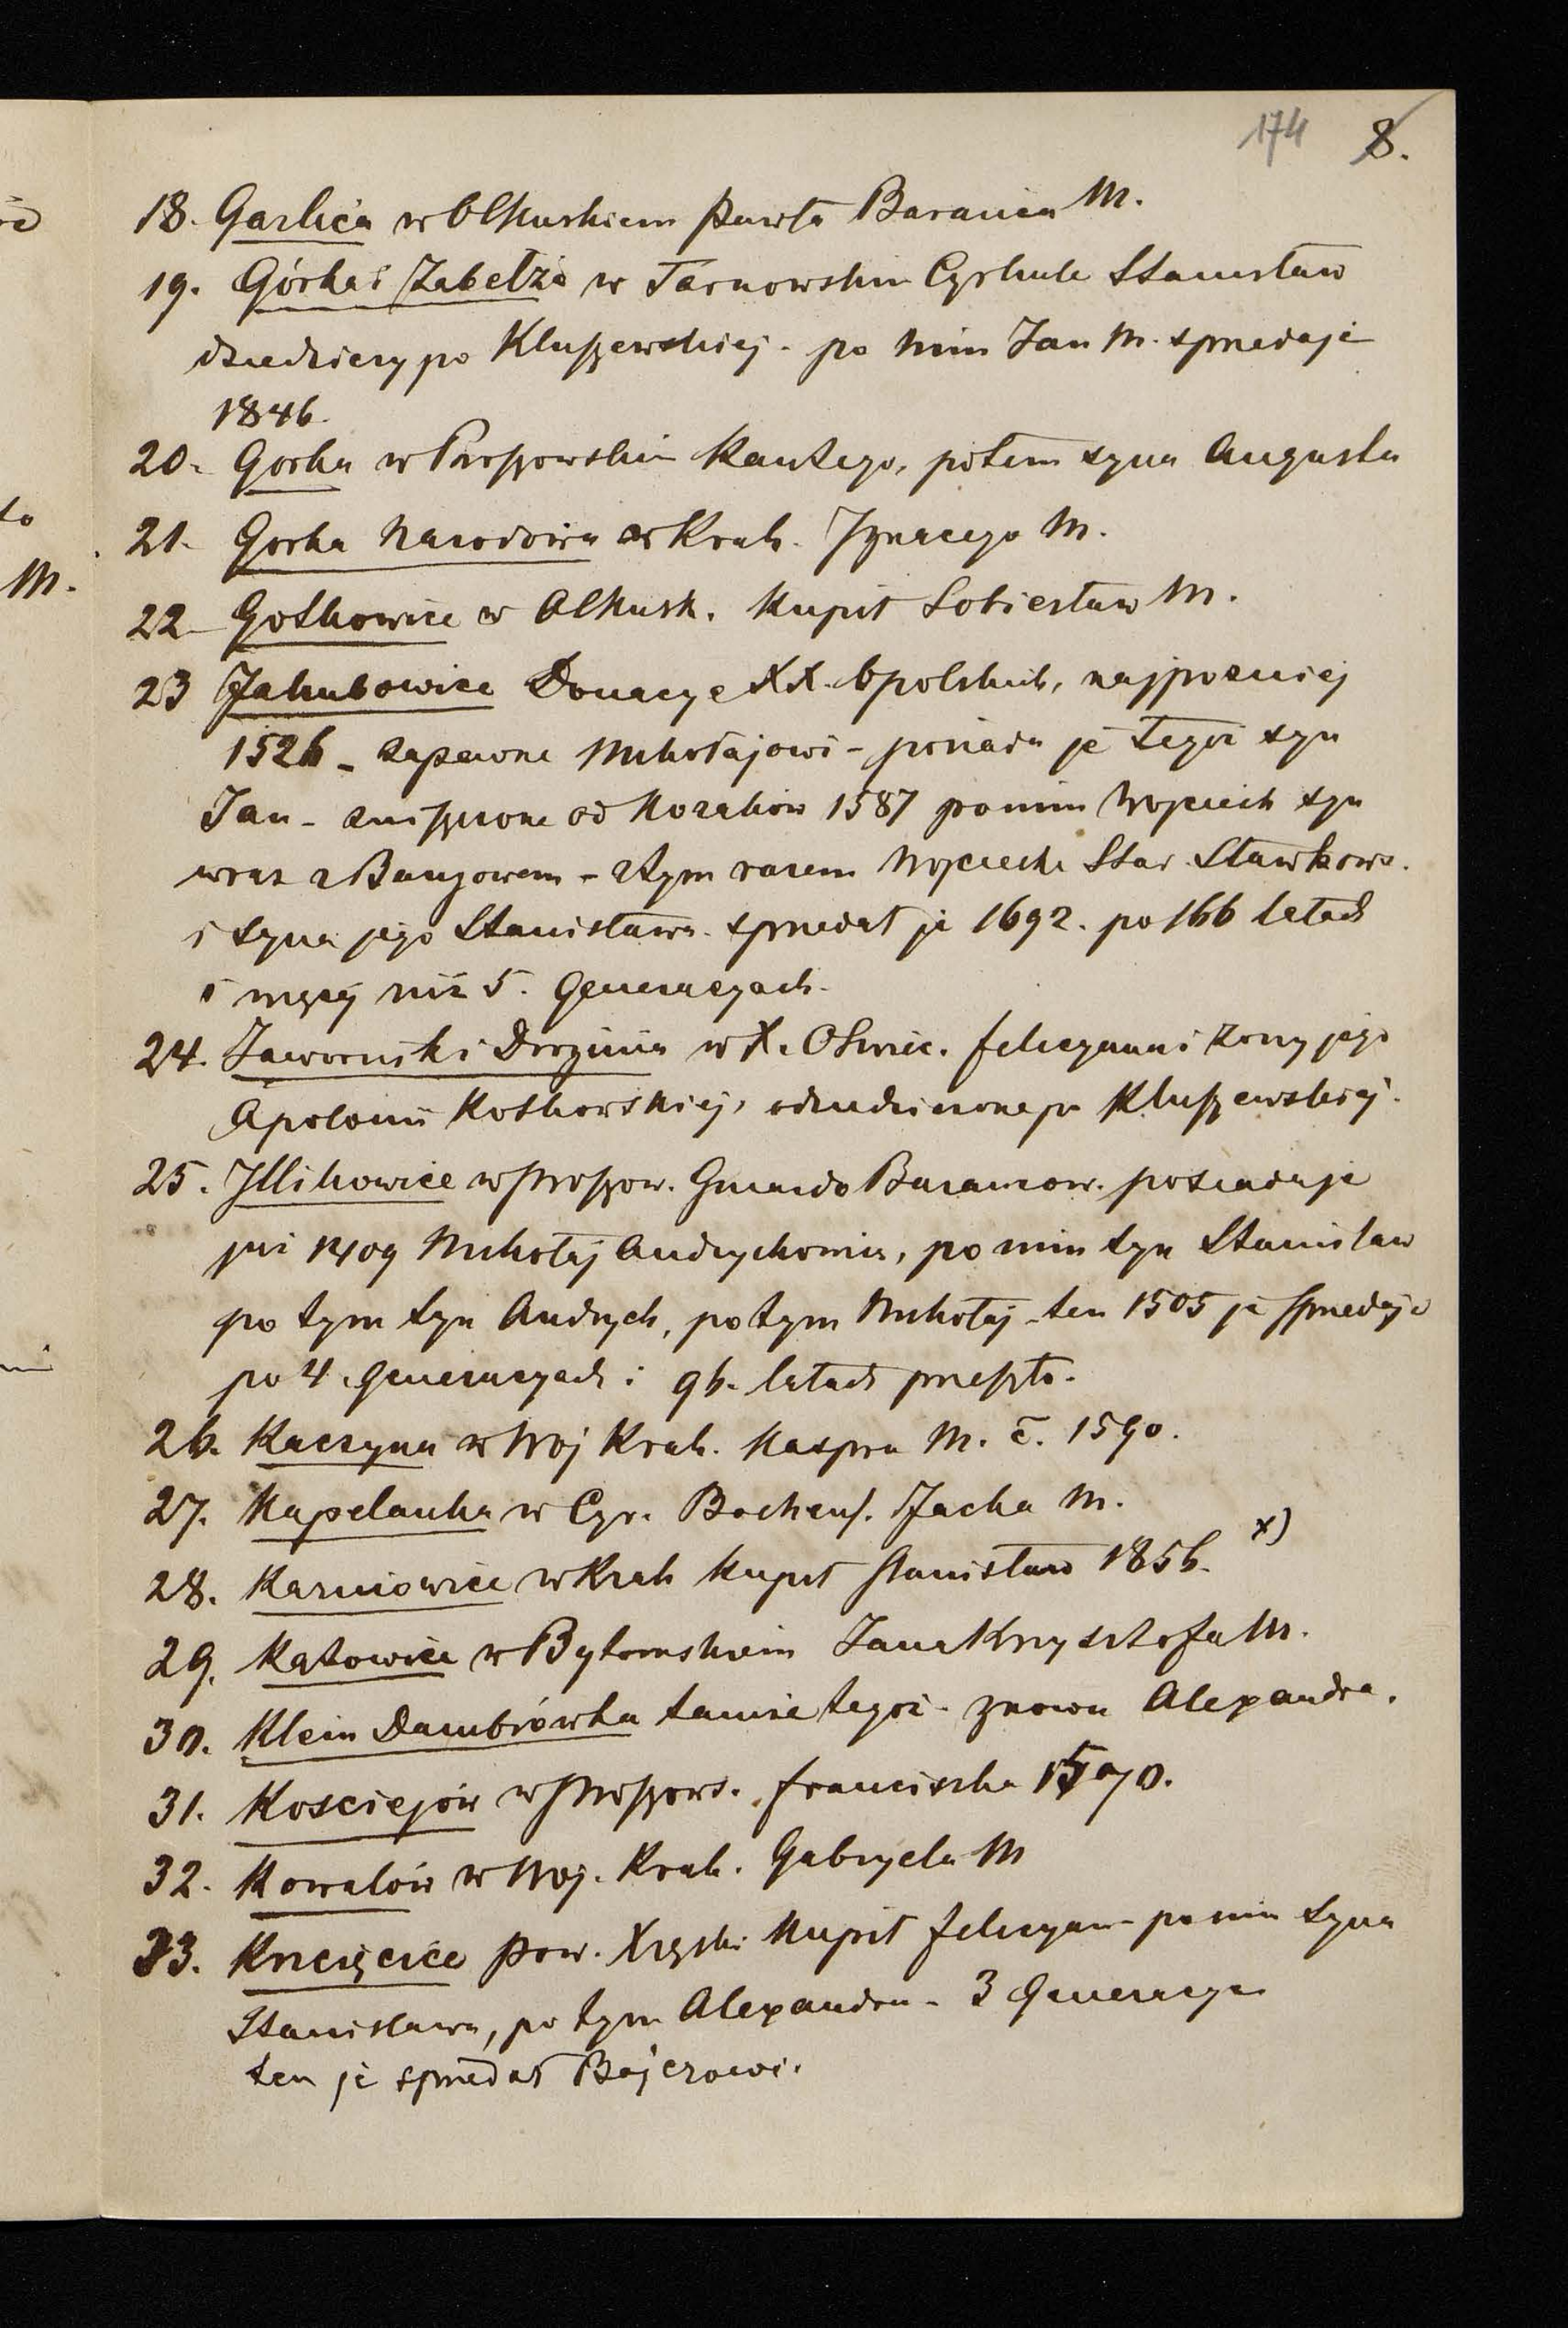 174 8.
18. Garlica w Olkuskiem Pawła Barania M.
19. Górka i Zabełże w Tarnowskim Cyrkule Stanisław
dziedziczy po Kluszewskiej - po nim Jan M. sprzedaje
1846.
20. Gorka w Proszowskim Kantego, potem syna Augusta
21. Gorka Narodowa w Krak. Ignacego M.
22 Gotkowice w Olkusk. Kupił Sobiesław M.
23 Jakubowice Donacye XX. Opolskich, najpozniej
1526 - zapewne Mikołajowi - posiada je tegoż syn
Jan - zniszczone od Kozaków 1587 po nim Wojciech syn
wraz z - z tym razem Wojciecha Star. Sławkows.
i syna jego Stanisława. sprzedał je 1692. po 166 latach
i więcej niż 5. Generacyach.
24. Jawornik i Droginia w X. Oświec. Felicyana i żony jego
Apolonii Kotkowskiej, odziedziczone po Kluszewskiej.
25. Illikowice w Proszow. Gniazdo Baranow. posiadaje
już 1409 Mikołaj Andrychowia, po nim syn Stanisław
po tym syn Andrych, po tym Mikołaj - ten 1505 je sprzedaje
po 4. Generacyach i 96. latach przeszło.
26. Kaczyna w Woj Krak. Kaspra M. č. 1590.
27. Kapelanka w Cyr. Bochens. Jacka M.
28. Karniowice w Krak Kupił Stanisław 1856. x)
29. Katowice w Bytomskiem Jana Krzysztofa M.
30. Klein Dambrówka tamże tegoż - znowu Alexandra.
31. Kosciejów w Proszows. Franciszka
32. Kowalów w Woj. Krak. Gabryela M
33. Krzcięcice Pow. Xięski Kupił Felicyan - po nim syna
Stanisława, po tym Alexandra - 3 Generacye
ten je sprzedał Bajerowi.